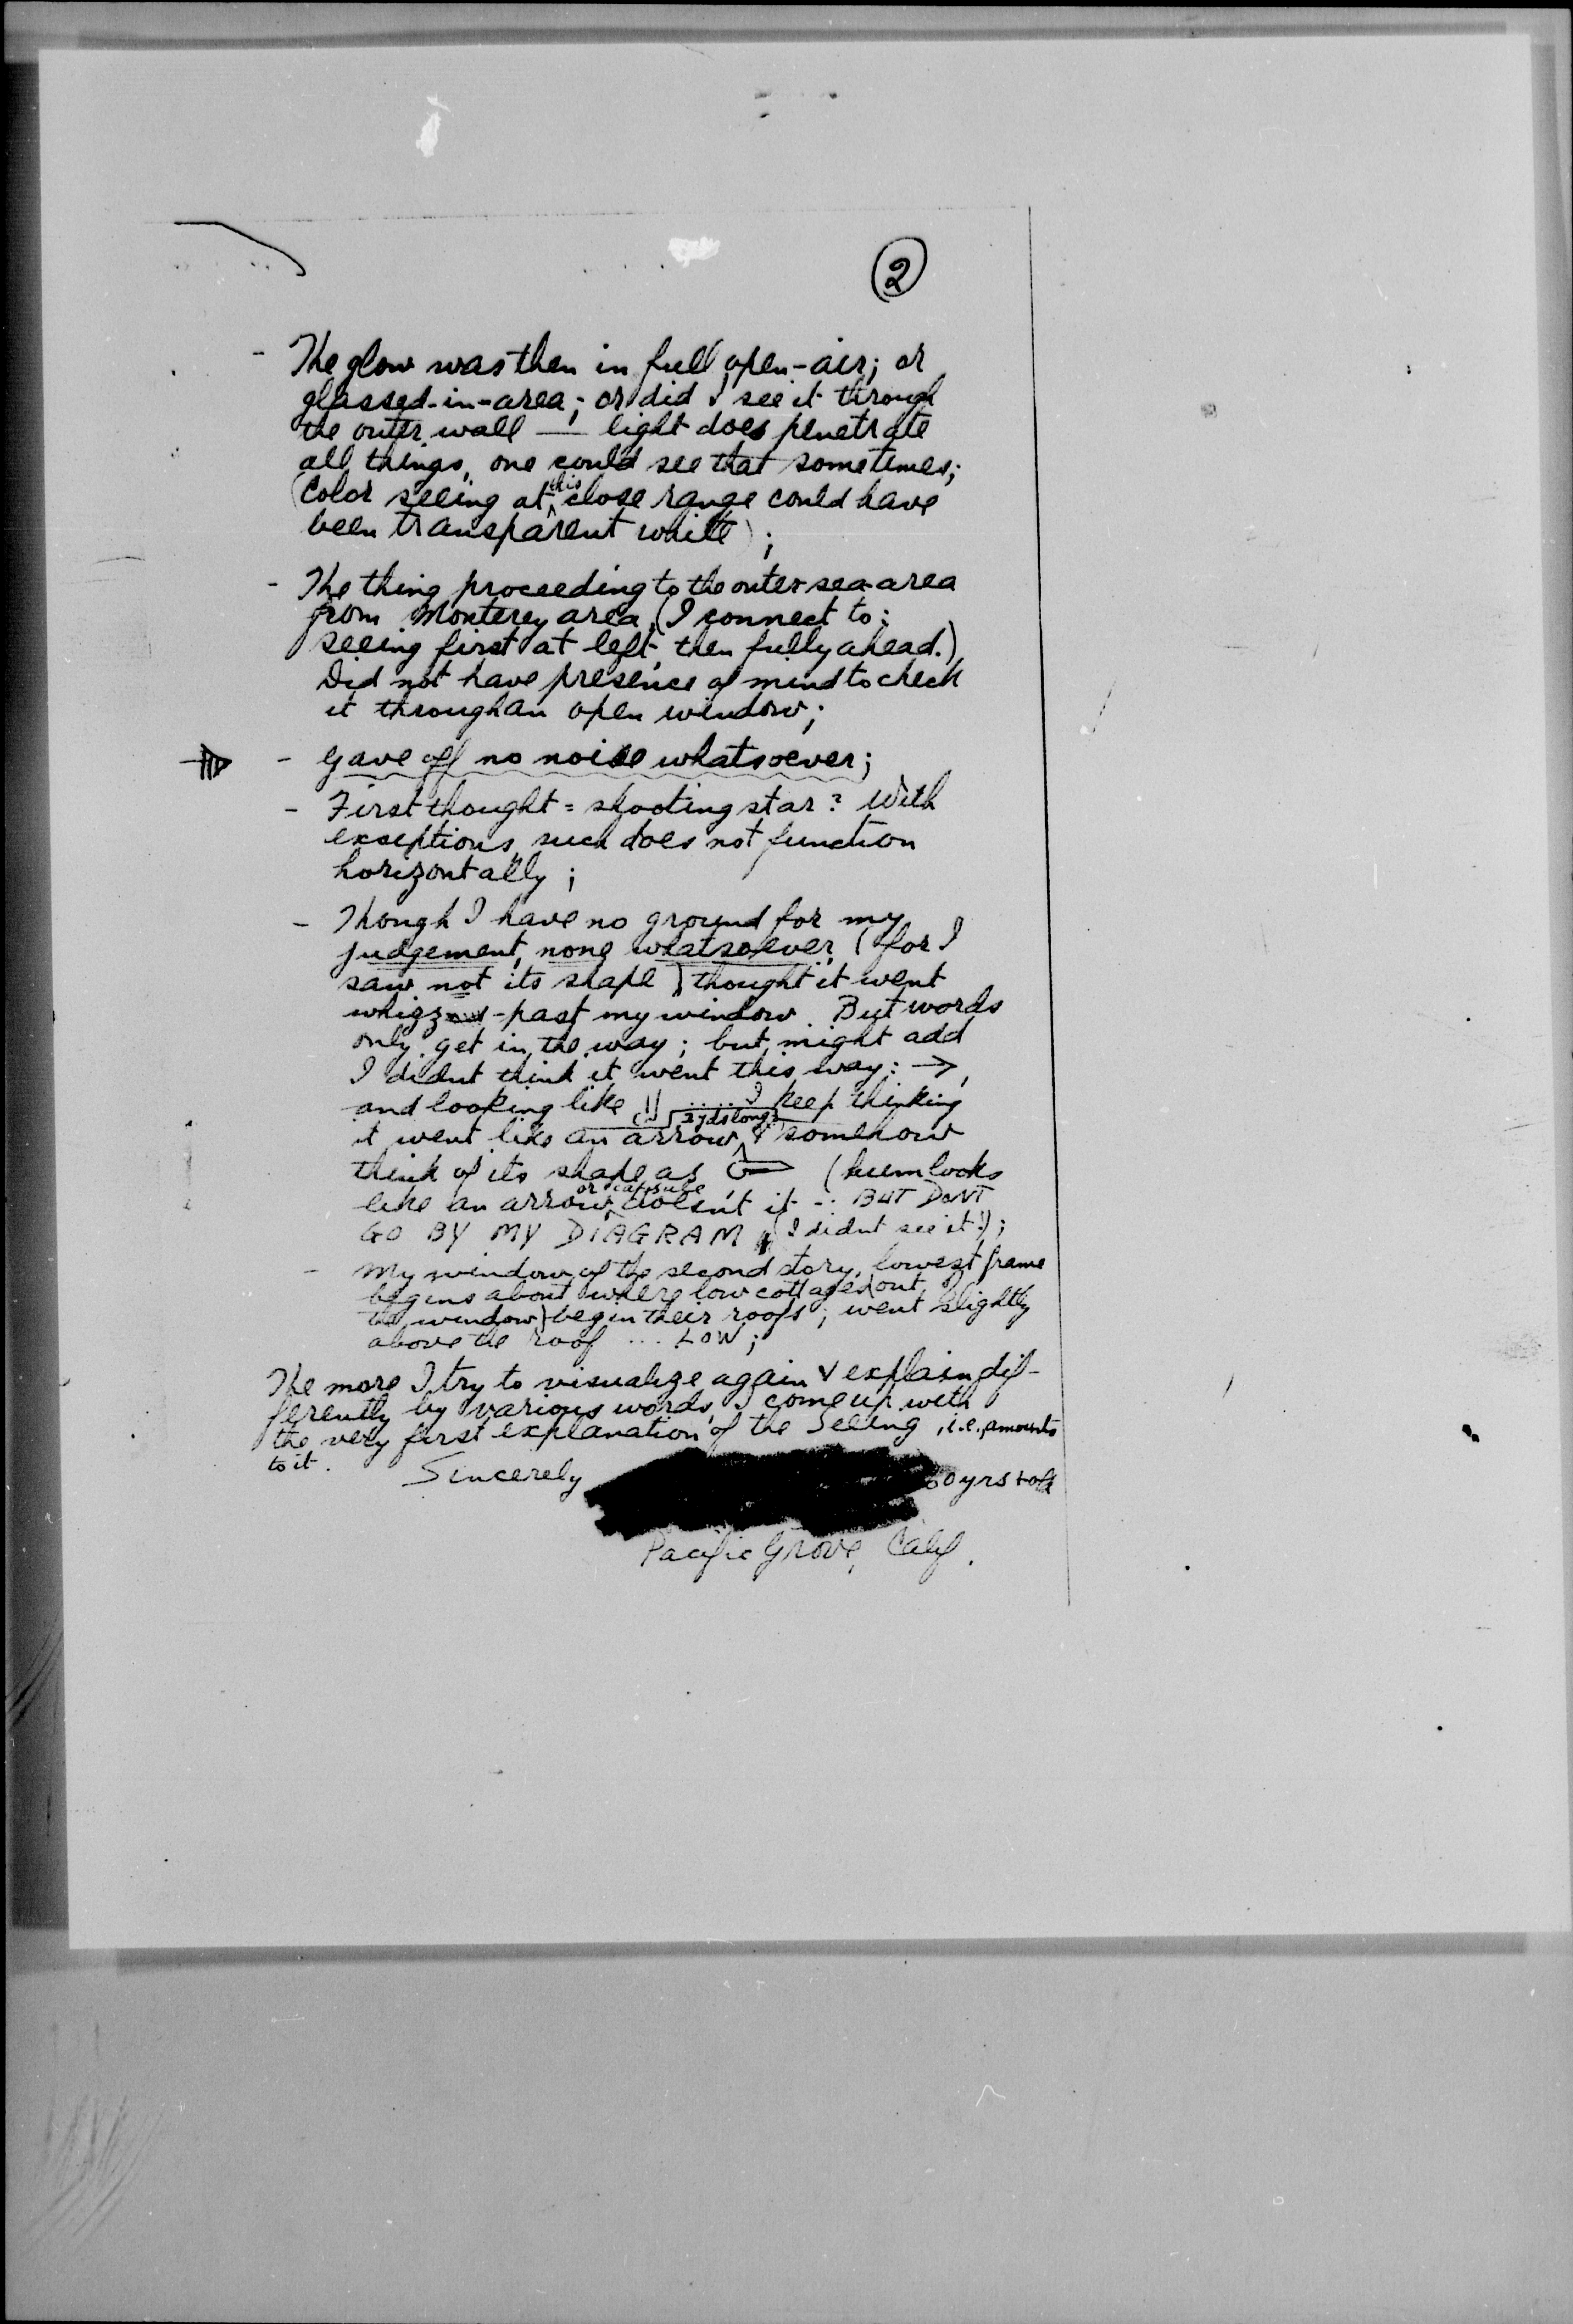 2
- The glow was then in full open-air; or
glassed-in-area; or did I see it through
the outer wall — light does penetrate
all things, one could see that sometimes;
(Color seeing at this close range could have
been transparent white);
- The thing proceeding to the outer sea area
from Monterey area, (I connect to:
seeing first at left, then fully ahead.)
Did not have presence of mind to check
it through an open window;
- Gave off no noise whatsoever;
- First thought = shooting star? With
exceptions, such does not function
horizontally;
- Though I have no ground for my
judgement, none whatsoever, (for I
saw not its shape) thought it went
whizz-past my window. But words
only get in the way; but might add
I didnt think it went this way: →,
and looking like ..... I keep thinking
2 yds long?
it went like an arrow, & somehow
think of its shape as (hum looks
like an arrow or capsule, doesn't it -: BUT DONT
GO BY MY DIAGRAM (I didnt see it!);
- My window of the second story, lowest frame
begins about where low cottages (out of
the window) begin their roofs; went slightly
above the roof ... LOW;
The more I try to visualize again & explain dif-
ferently by various words, I come up with
the very first explanation of the Seeing, i.e., amounts
to it.
Sincerely
60 yrs old
Pacific Grove, Calif.